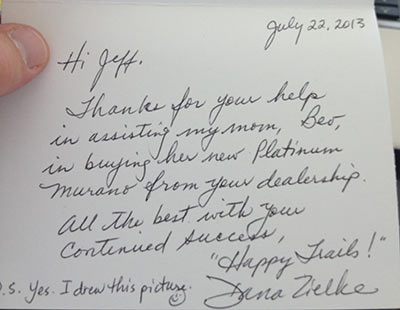 July 22, 2013
Hi Jeff.
Thanks for your help
in assisting my mom, Bev,
in buying her new Platinum
Murano from your dealership.
All the best with your
Continued success,
"Happy Trails!"
Dana Zielke
.S. Yes. I drew this picture.